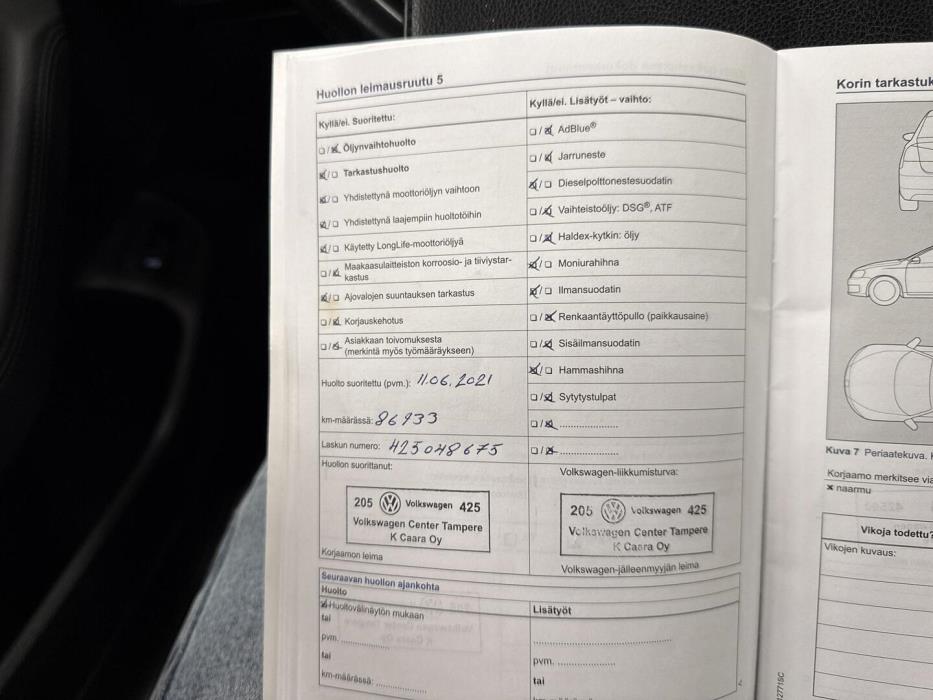 Huollon leimausruutu 5
Kyllä/ei. Suoritettu:
☐/☒ Öljynvaihtohuolto
☒/☐ Tarkastushuolto
☒/☐ Yhdistettynä moottoriöljyn vaihtoon
☒/☐ Yhdistettynä laajempiin huoltotöihin
☒/☐ Käytetty LongLife-moottoriöljyä
☐/☒ Maakaasulaitteiston korroosio- ja tiiviystar-
kastus
☒/☐ Ajovalojen suuntauksen tarkastus
☐/☒ Korjauskehotus
☐/☒ Asiakkaan toivomuksesta
(merkintä myös työmääräykseen)
Huolto suoritettu (pvm.): 11.06.2021
km-määrässä: 86933
Laskun numero: 425048675
Huollon suorittanut:
205 Volkswagen 425
Volkswagen Center Tampere
K Caara Oy
Korjaamon leima
Kyllä/ei. Lisätyöt – vaihto:
☐/☒ AdBlue®
☐/☒ Jarruneste
☒/☐ Dieselpolttonestesuodatin
☐/☒ Vaihteistoöljy: DSG®, ATF
☐/☒ Haldex-kytkin: öljy
☒/☐ Moniurahihna
☒/☐ Ilmansuodatin
☐/☒ Renkaantäyttöpullo (paikkausaine)
☐/☒ Sisäilmansuodatin
☒/☐ Hammashihna
☐/☒ Sytytystulpat
☐/☒ ....................
☐/☒ ....................
Volkswagen-liikkumisturva:
205 Volkswagen 425
Volkswagen Center Tampere
K Caara Oy
Volkswagen-jälleenmyyjän leima
Seuraavan huollon ajankohta
Huolto
☒ Huoltovälinäytön mukaan
tai
pvm. ....................
tai
km-määrässä: ....................
Lisätyöt
....................
pvm. ....................
tai
Korin tarkastuk
Kuva 7 Periaatekuva.
Korjaamo merkitsee
× naarmu
Vikoja todettu?
Vikojen kuvaus: